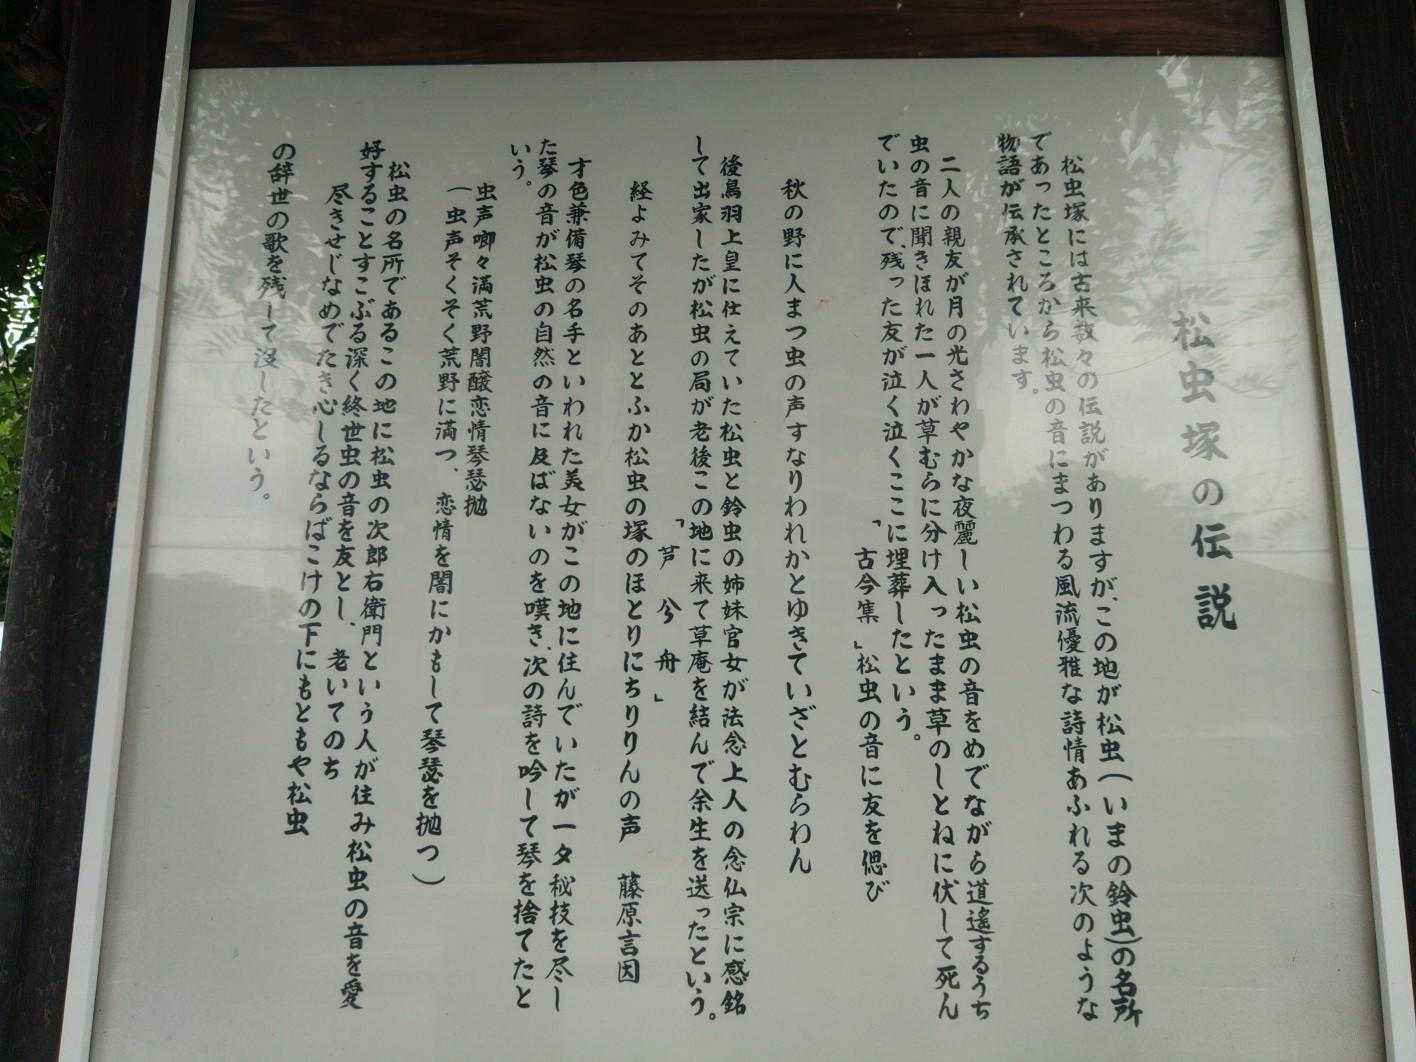 松虫塚の伝説
松虫塚には古来数々の伝説がありますが、この地が松虫(いまの鈴虫)の名所
であったところから松虫の音にまつわる風流優雅な詩情あふれる次のような
物語が伝承されています。
二人の親友が月の光さわやかな夜麗しい松虫の音をめでながら道遙するうち
虫の音に聞きほれた一人が草むらに分け入ったまま草のしとねに伏して死ん
でいたので、残った友が泣く泣くここに埋葬したという。
「古今集」松虫の音に友を偲び
秋の野に人まつ虫の声すなりわれかとゆきていざとむらわん
後鳥羽上皇に仕えていた松虫と鈴虫の姉妹官女が法念上人の念仏宗に感銘
して出家したが松虫の局が老後この地に来て草庵を結んで余生を送ったという。
「芦分舟」
経よみてそのあととふか松虫の塚のほとりにちりりんの声 藤原言因
才色兼備琴の名手といわれた美女がこの地に住んでいたが一夕秘技を尽し
た琴の音が松虫の自然の音に及ばないのを嘆き、次の詩を吟して琴を捨てたと
いう。
虫声喞々満荒野闇醸恋情琴瑟抛
(虫声そくそく荒野に満つ、恋情を闇にかもして琴瑟を抛つ)
松虫の名所であるこの地に松虫の次郎右衛門という人が住み松虫の音を愛
好することすこぶる深く終世虫の音を友とし、老いてのち
尽きせじなめでたき心しるならばこけの下にもともや松虫
の辞世の歌を残して没したという。